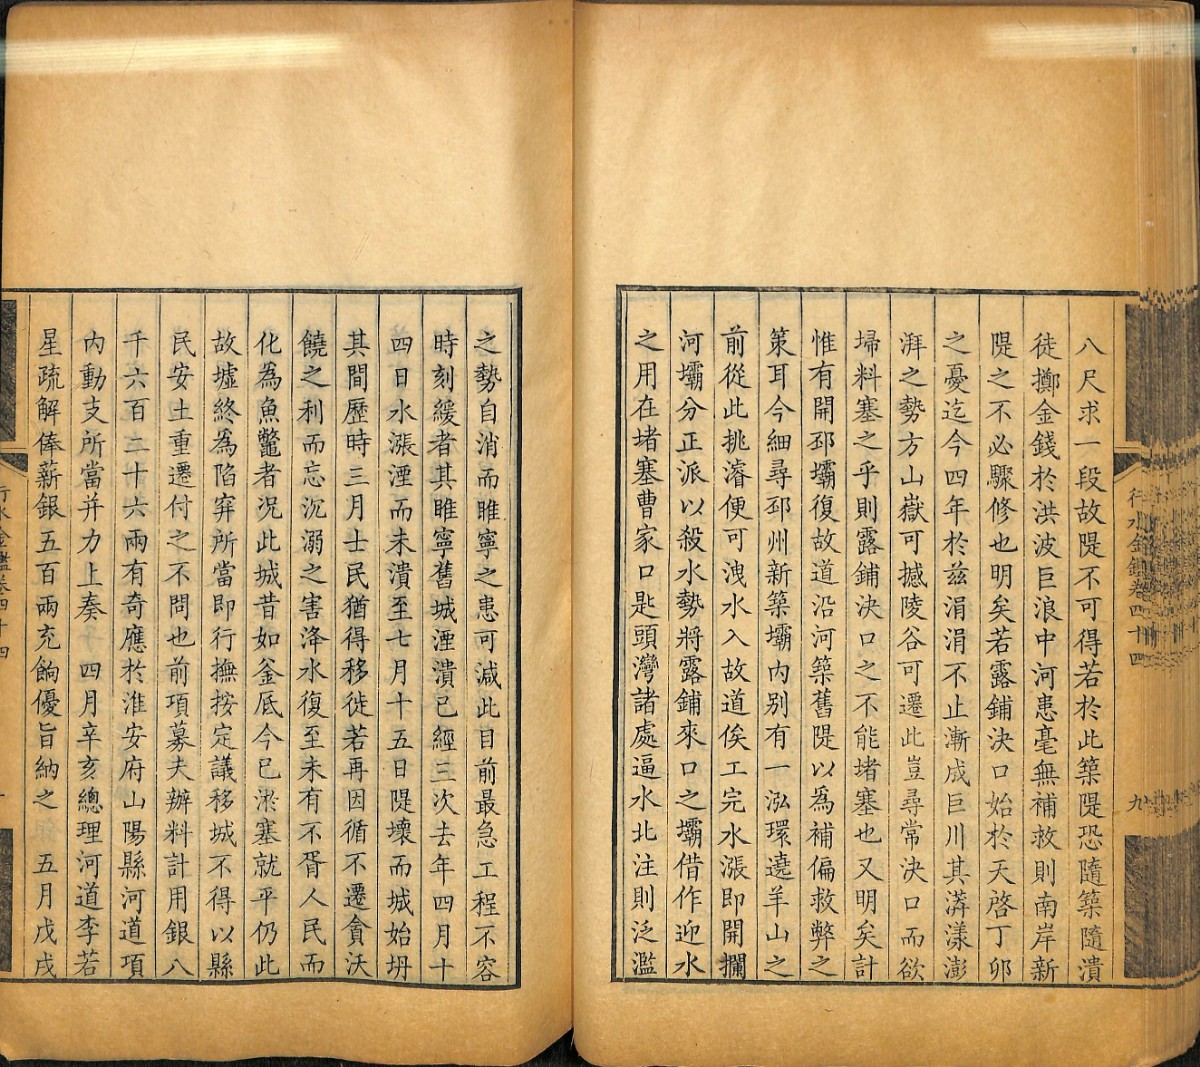 行水金鑑卷四十四
九
八尺求一段故隄不可得若於此築隄恐隨築隨潰
徒擲金錢於洪波巨浪中河患毫無補救則南岸新
隄之不必驟修也明矣若露鋪決口始於天啓丁卯
之憂迄今四年於茲涓涓不止漸成巨川其漭漾澎
湃之勢方山嶽可撼陵谷可遷此豈尋常決口而欲
埽料塞之乎則露鋪決口之不能堵塞也又明矣計
惟有開邳壩復故道沿河築舊隄以為補偏救弊之
策耳今細尋邳州新築壩內別有一泓環遶羊山之
前從此挑濬便可洩水入故道俟工完水漲即開攔
河壩分正派以殺水勢將露鋪來口之壩借作迎水
之用在堵塞曹家口匙頭灣諸處逼水北注則泛濫
之勢自消而睢寧之患可減此目前最急工程不容
時刻緩者其睢寧舊城湮潰已經三次去年四月十
四日水漲湮而未潰至七月十五日隄壞而城始坍
其間歷時三月士民猶得移徙若再因循不遷貪沃
饒之利而忘沉溺之害洚水復至未有不胥人民而
化為魚鼈者況此城昔如釜底今已淤塞就平仍此
故墟終為陷穽所當即行撫按定議移城不得以縣
民安土重遷付之不問也前項募夫辦料計用銀八
千六百二十六兩有奇應於淮安府山陽縣河道項
內動支所當并力上奏 四月辛亥總理河道李若
星疏解俸薪銀五百兩充餉優旨納之 五月戊戌
行水金鑑卷四十四